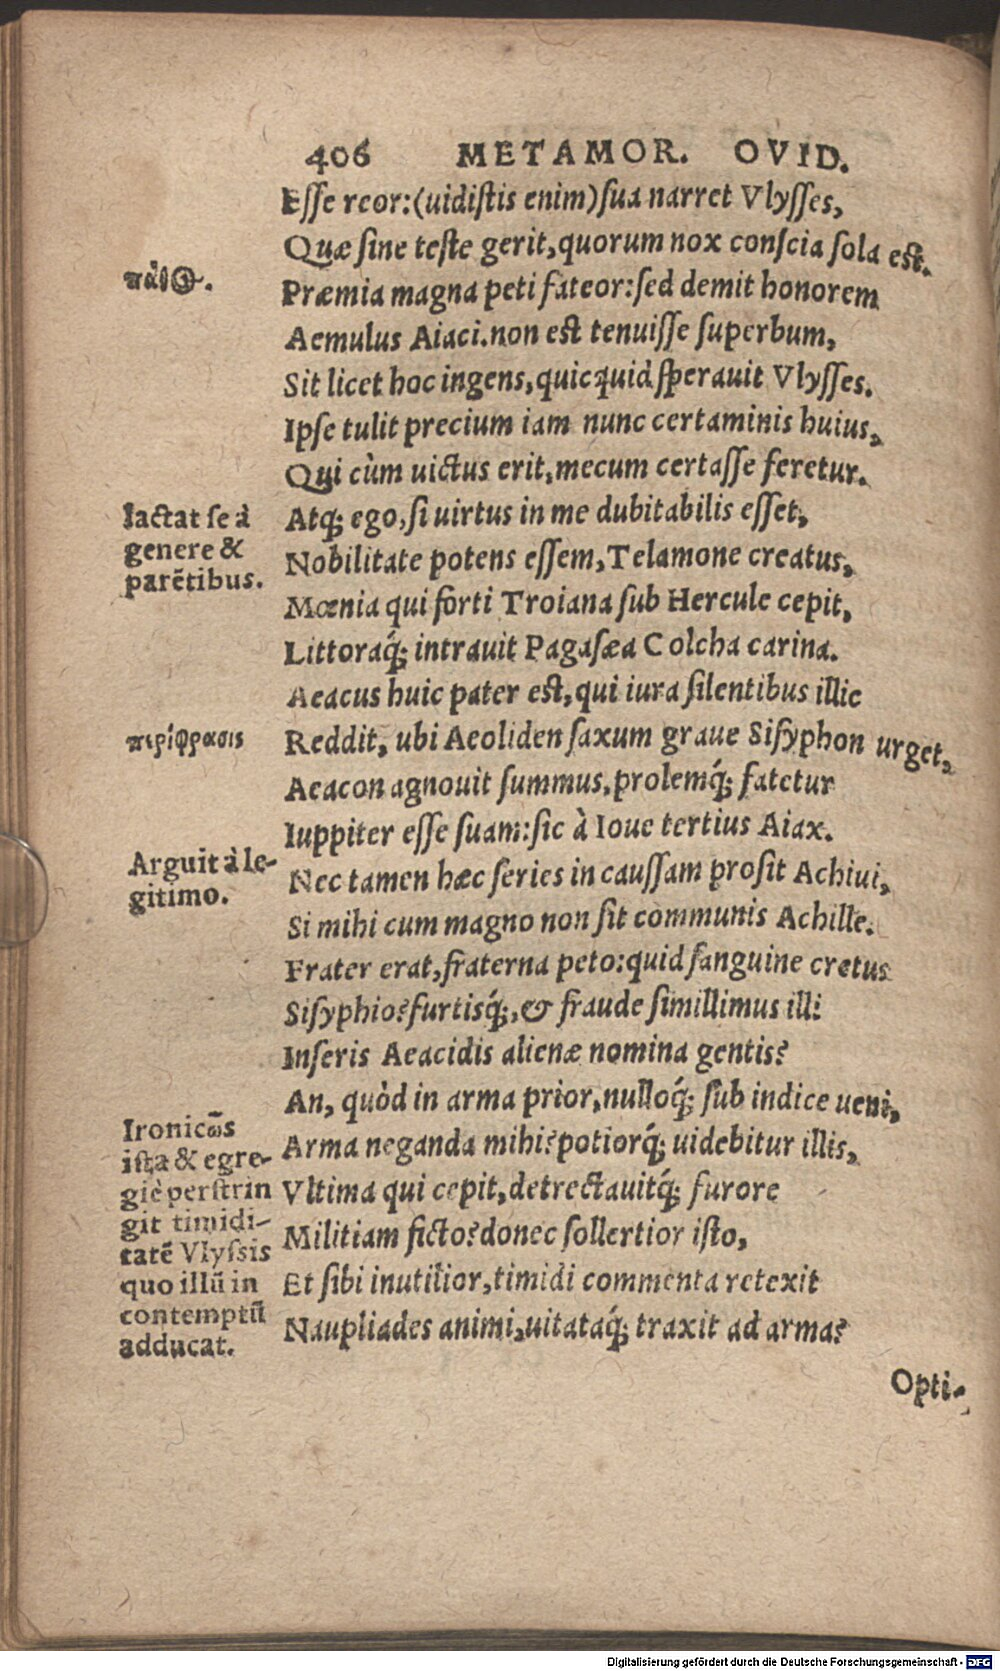 406 METAMOR. OVID.
Esse reor:(uidistis enim)sua narret Vlysses,
Quæ sine teste gerit,quorum nox conscia sola est.
πάθ۟ος.
Præmia magna peti fateor:sed demit honorem
Aemulus Aiaci.non est tenuisse superbum,
Sit licet hoc ingens,quicquid sperauit Vlysses.
Ipse tulit precium iam nunc certaminis huius,
Qui cùm uictus erit,mecum certasse feretur.
Iactat se à
genere &
parẽtibus.
Atq; ego,si uirtus in me dubitabilis esset,
Nobilitate potens essem,Telamone creatus,
Mœnia qui forti Troiana sub Hercule cepit,
Littoraq́; intrauit Pagasæa Colcha carina.
Aeacus huic pater est,qui iura silentibus illic
περίφρασις
Reddit, ubi Aeoliden saxum graue Sisyphon urget,
Aeacon agnouit summus,prolemq́; fatetur
Iuppiter esse suam:sic à Ioue tertius Aiax.
Arguit à le-
gitimo.
Nec tamen hæc series in caussam prosit Achiui,
Si mihi cum magno non sit communis Achille.
Frater erat,fraterna peto:quid sanguine cretus
Sisyphio?furtisq́;,& fraude simillimus illi
Inseris Aeacidis alienæ nomina gentis?
An, quòd in arma prior,nulloq́; sub indice ueni,
Ironicω̃s
ista & egre-
giè perstrin
git timidi-
tatẽ Vlyssis
quo illũ in
contemptũ
adducat.
Arma neganda mihi?potiorq́; uidebitur illis,
Vltima qui cepit,detrectauitq́; furore
Militiam ficto?donec sollertior isto,
Et sibi inutilior,timidi commenta retexit
Naupliades animi,uitataq́; traxit ad arma?
Opti-
Digitalisierung gefördert durch die Deutsche Forschungsgemeinschaft - DFG